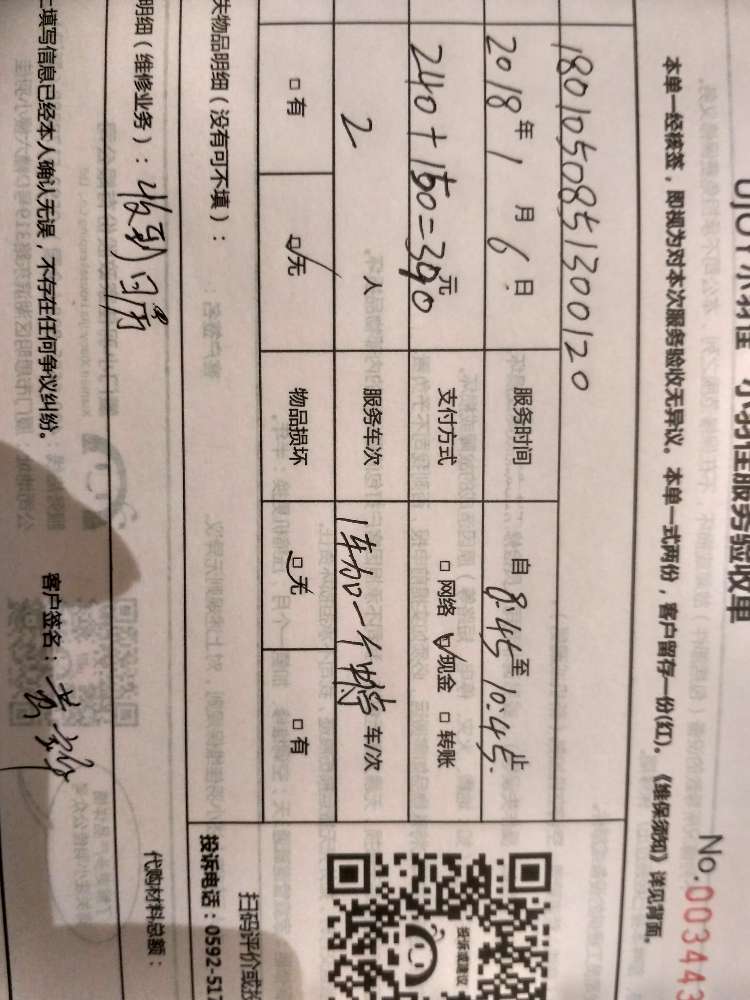 小羽佳服务验收单
No.003443
本单一经核签，即视为对本次服务验收无异议。本单一式两份，客户留存一份(红)。《维保须知》详见背面。
180105085130120
2018年1月6日 服务时间 自8:45至10:45止
240+150=390元 支付方式 □网络 ☑现金 □转账
2人 服务车次 车/次
□有 ☑无 物品损坏 ☑无 □有
失物品明细（没有可不填）：
扫码评价或投
投诉或建议
投诉电话：0592-517
明细（维修业务）：
代购材料总额：
上填写信息已经本人确认无误，不存在任何争议纠纷。 客户签名：